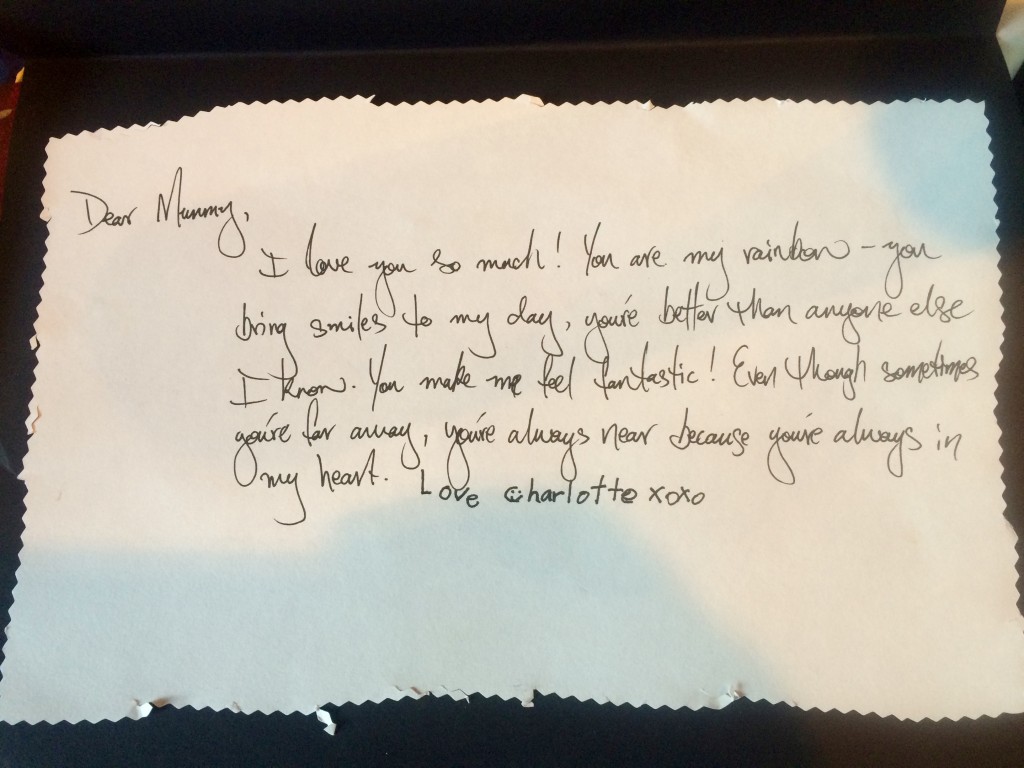 Dear Mummy,
I love you so much! You are my rainbow – you
bring smiles to my day, you're better than anyone else
I know. You make me feel fantastic! Even though sometimes
you're far away, you're always near because you're always in
my heart. Love Charlotte xoxo